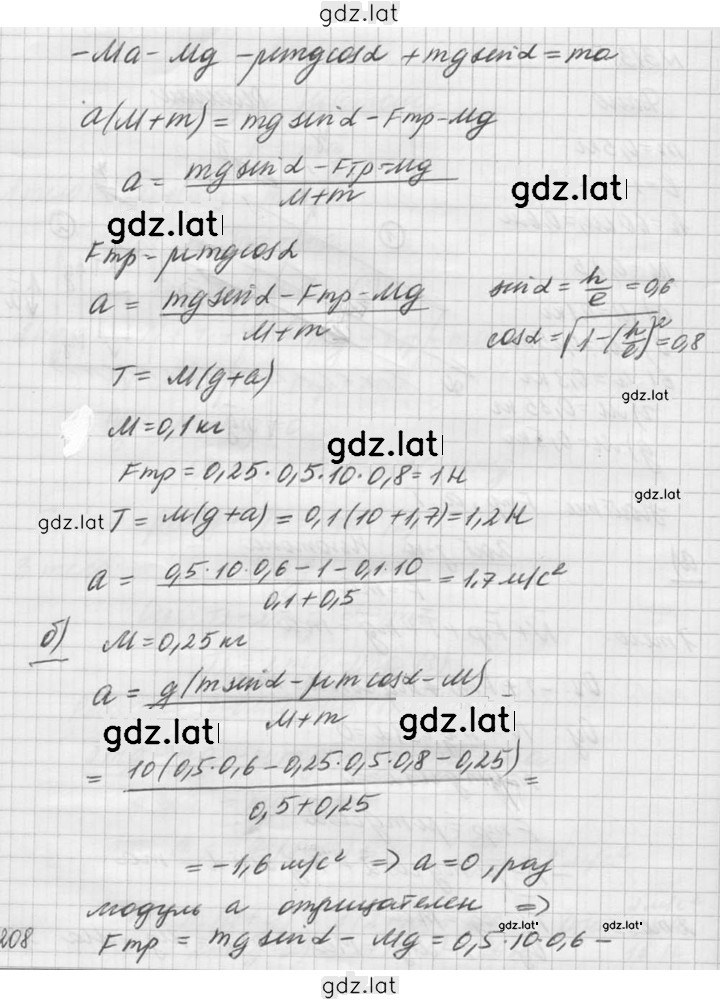 gdz.lat
-Ma - Mg - μmgcosα + mgsinα = ma
a(M+m) = mgsinα - Fтр - Mg
a = (mgsinα - Fтр - Mg)/(M+m)
gdz.lat
gdz.lat
Fтр = μmgcosα
a = (mgsinα - Fтр - Mg)/(M+m)
sinα = h/e = 0,6
cosα = √(1-(h/e)²) = 0,8
T = M(g+a)
gdz.lat
M = 0,1 кг
gdz.lat
Fтр = 0,25·0,5·10·0,8 = 1 Н
gdz.lat
gdz.lat
T = M(g+a) = 0,1(10+1,7) = 1,2 Н
a = (0,5·10·0,6 - 1 - 0,1·10)/(0,1+0,5) = 1,7 м/с²
б) M = 0,25 кг
a = g(msinα - μmcosα - M)/(M+m) =
gdz.lat
gdz.lat
= 10(0,5·0,6 - 0,25·0,5·0,8 - 0,25)/(0,5+0,25) =
= -1,6 м/с² => a = 0, раз
модуль a отрицателен =>
gdz.lat
gdz.lat
208
Fтр = mgsinα - Mg = 0,5·10·0,6 -
gdz.lat